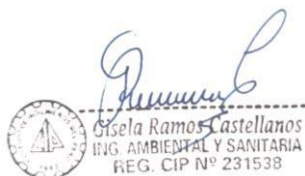 Gisela Ramos Castellanos
ING. AMBIENTAL Y SANITARIA
REG. CIP Nº 231538